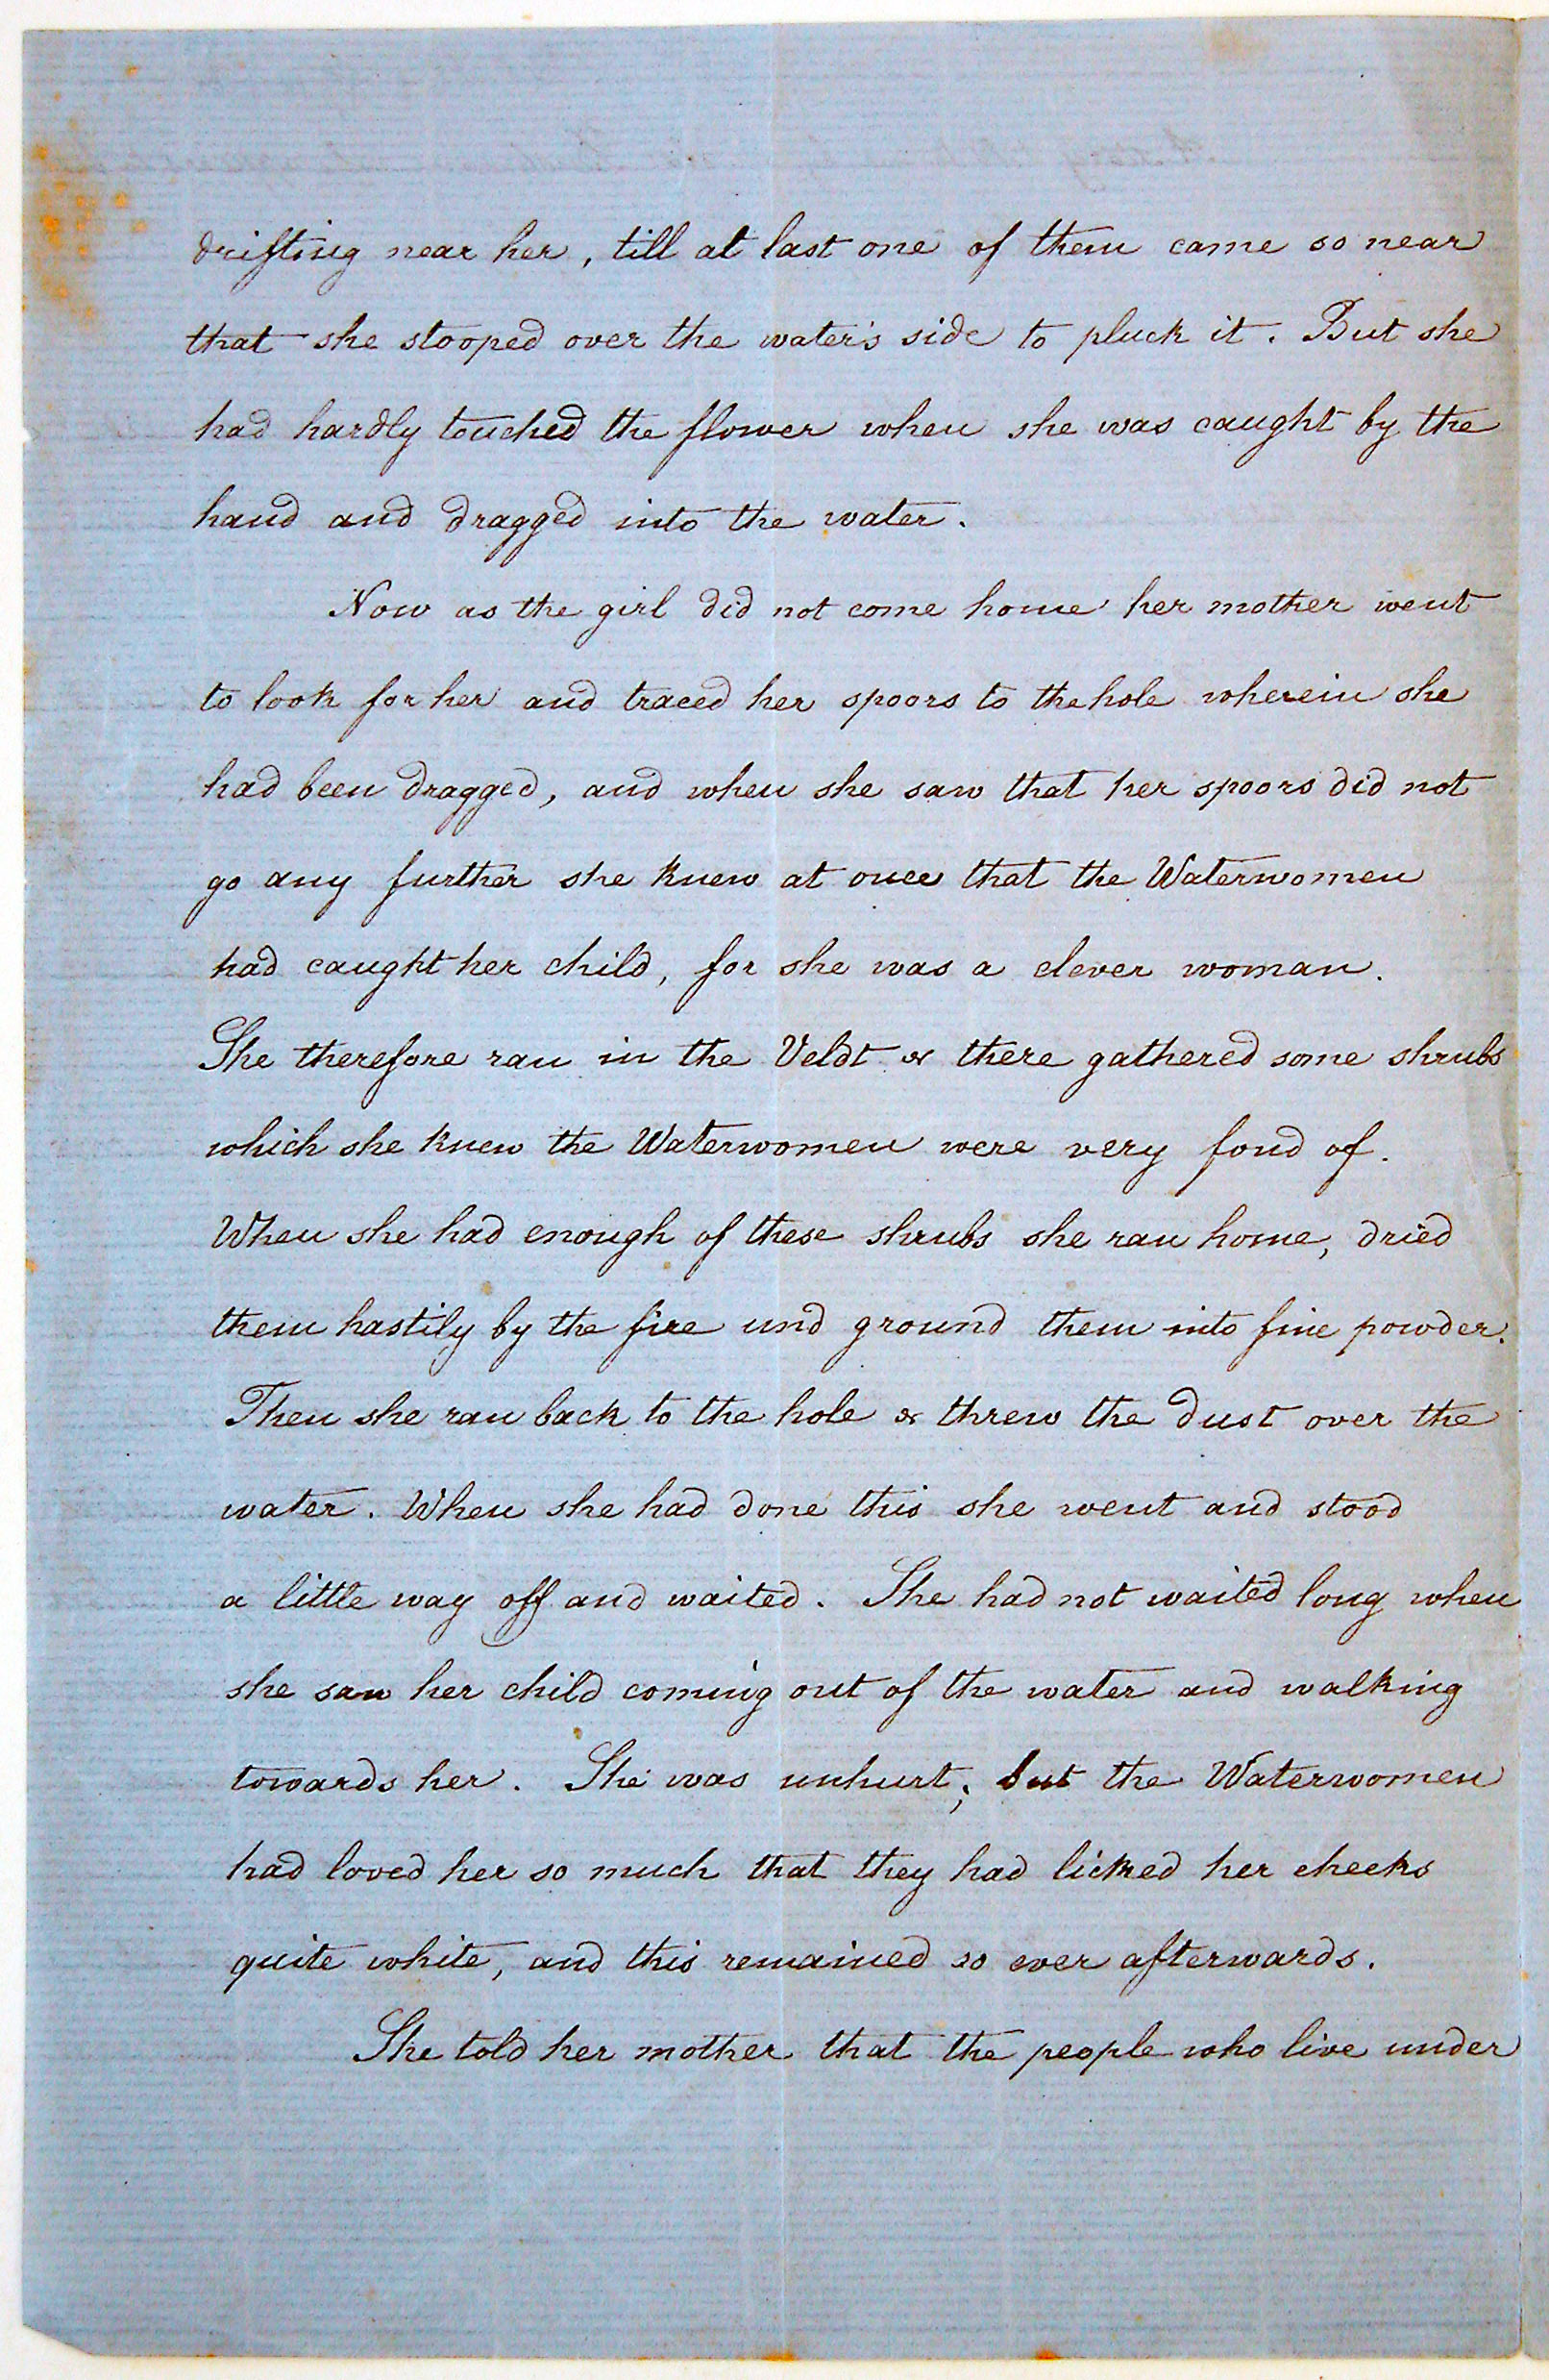 drifting near her, till at last one of them came so near
that she stooped over the water's side to pluck it. But she
had hardly touched the flower when she was caught by the
hand and dragged into the water.
Now as the girl did not come home her mother went
to look for her and traced her spoors to the hole wherein she
had been dragged, and when she saw that her spoors did not
go any further she knew at once that the Waterwomen
had caught her child, for she was a clever woman.
She therefore ran in the Veldt & there gathered some shrubs
which she knew the Waterwomen were very fond of.
When she had enough of these shrubs she ran home, dried
them hastily by the fire und ground them into fine powder.
Then she ran back to the hole & threw the dust over the
water. When she had done this she went and stood
a little way off and waited. She had not waited long when
she saw her child coming out of the water and walking
towards her. She was unhurt; but the Waterwomen
had loved her so much that they had licked her cheeks
quite white, and this remained so ever afterwards.
She told her mother that the people who live under